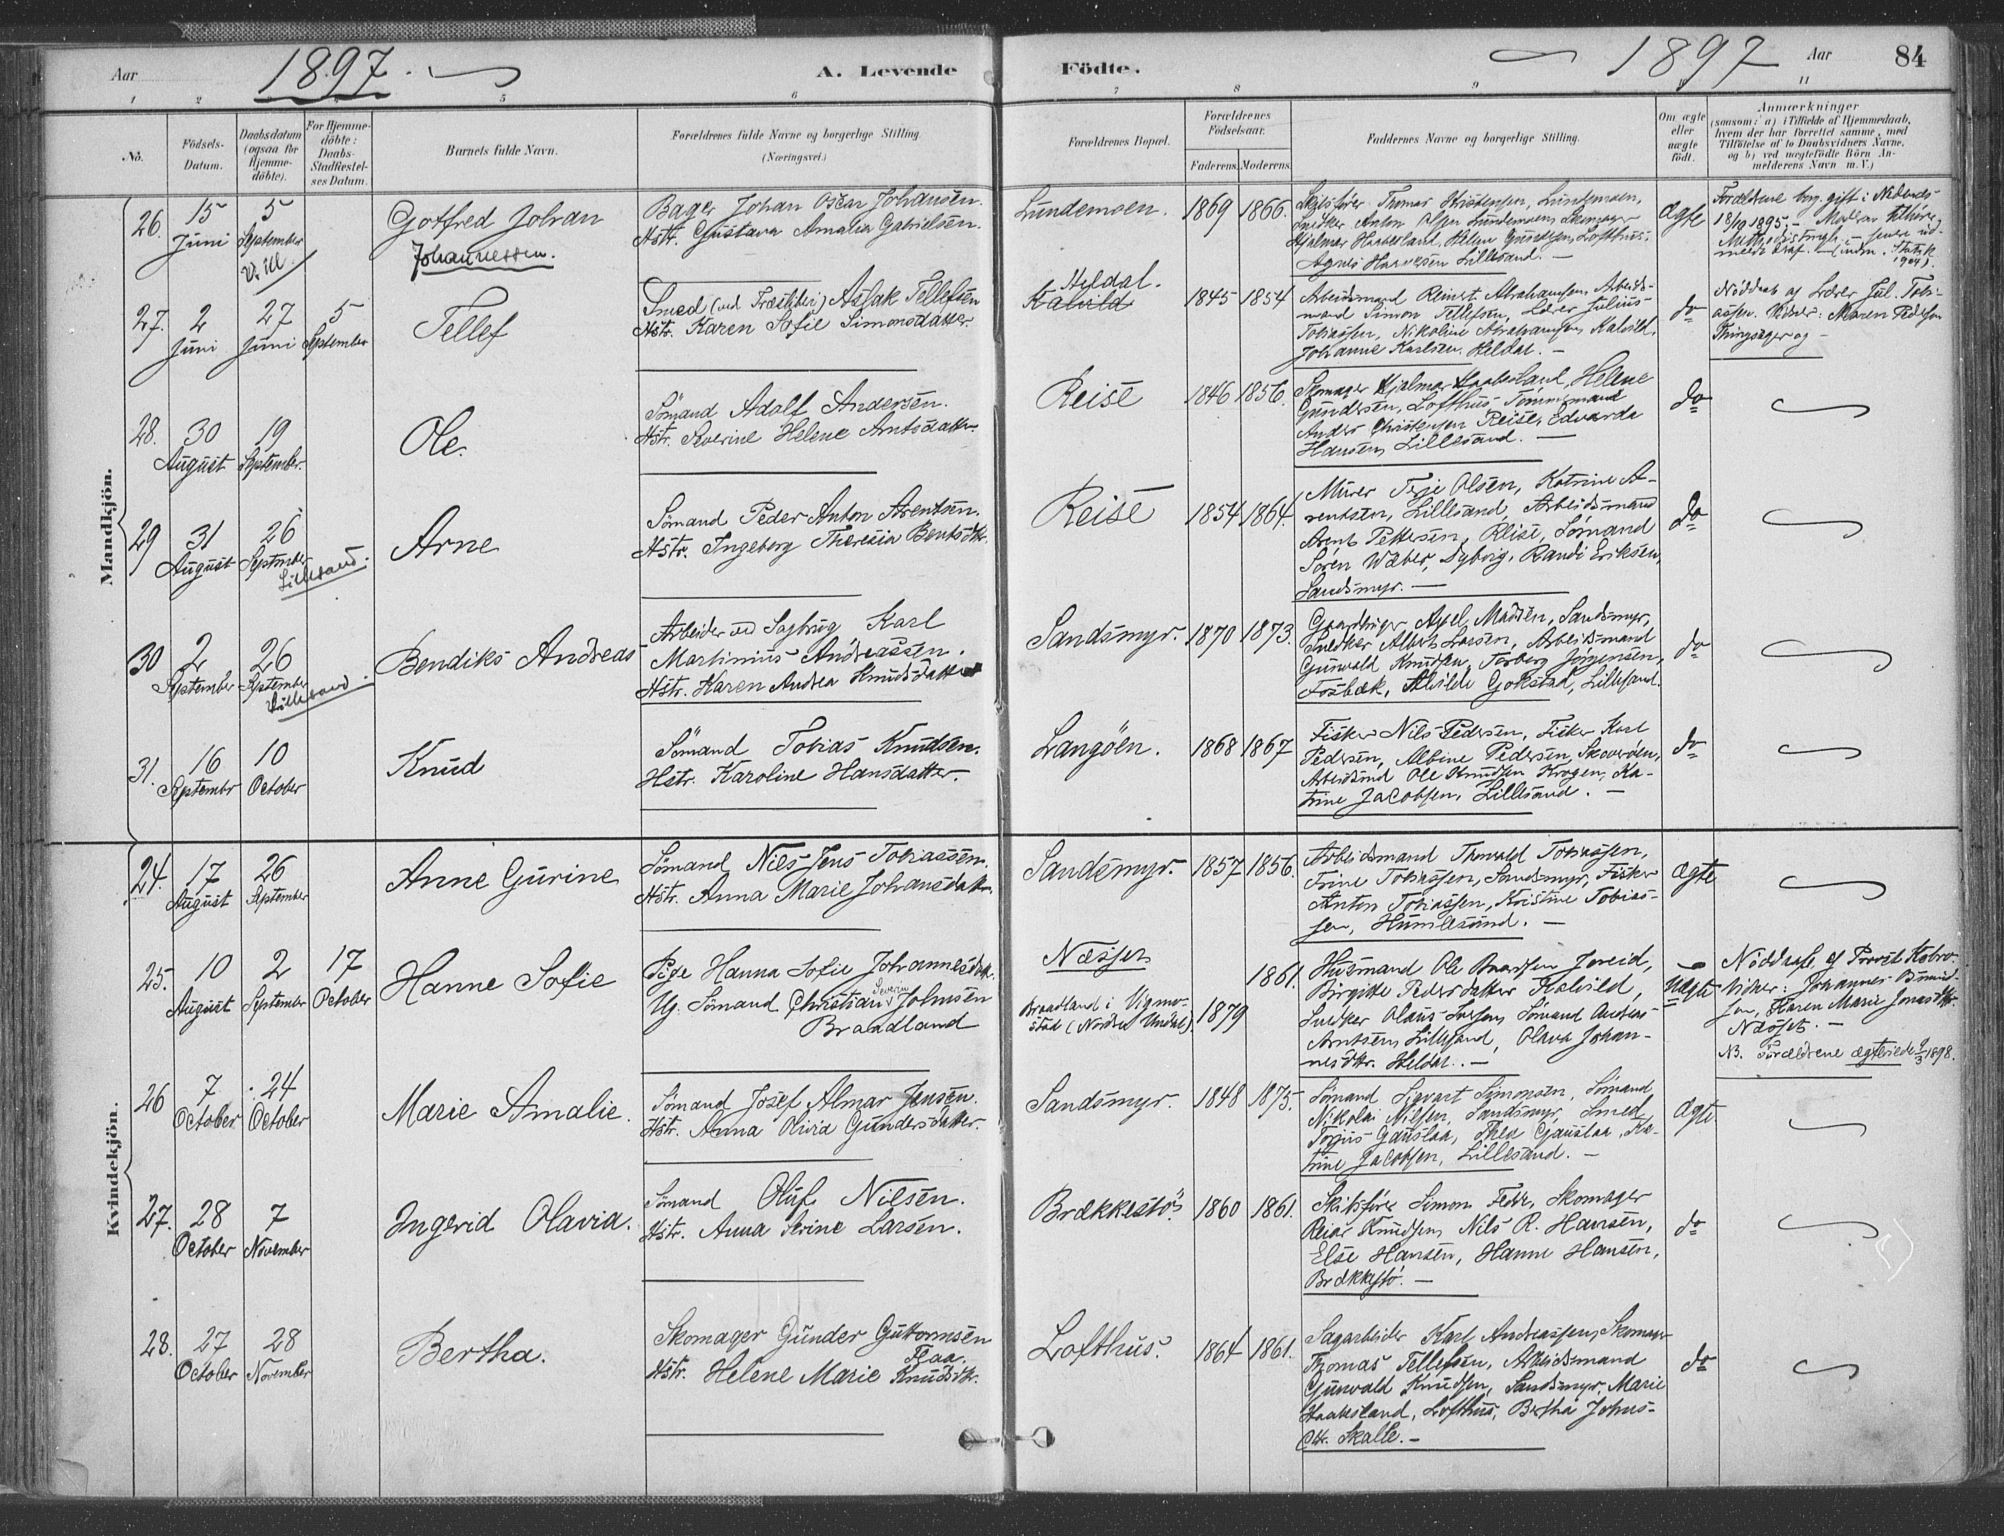 Aar 1897. A. Levende Födte. 1897 Aar 84
1 2 5 6 7 8 9 11
No.
Födsels-
Datum.
Daabsdatum
(ogsaa for
Hjemme-
döbte).
For Hjemme-
döbte:
Daabs-
Stadfæstel-
ses Datum.
Barnets fulde Navn.
Forældrenes fulde Navne og borgerlige Stilling.
(Næringsvei.)
Forældrenes Bopæl.
Forældrenes
Födselsaar.
Faderens. Moderens.
Faddernes Navne og borgerlige Stilling.
Om ægte
eller
uægte
födt.
Anmærkninger
(saasom: a) i Tilfælde af Hjemmedaab,
hvem der har forrettet samme, med
Tilföielse af to Daabsvidners Navne,
og b) ved uægtefödte Börn An-
melderens Navn m. V.)
Mandkjön.
26. 15 Juni
5 September
Gotfred Johan
Johannessen.
Bager Johan Oscar Johansen.
Hstr. Gustava Amalia Gabrielsen.
Lundemoen. 1869 1866.
Skibsfører Thomas Kristensen, Lundemoen,
Snedker Anton Olsen Lundemoen, Skomager
Hjalmar Haabesland, Helene Gundersen, Lofthus,
Agnes Hansen Lillesand. –
Ægte
27. 2 Juni
27 Juni
5 September
Tellef
Smed (ved Træskiberi) Aslak Tellefsen
Hstr. Karen Sofie Simonsdatter.
Heldal.
Kalvild
1845 1854
Arbeidsmand Reinert Abrahamsen, Arbeids-
mand Simon Tellefsen, Lærer Julius
Tobiassen, Nikoline Abrahamsen Kalvild,
Johanne Karlsen, Heldal. –
do
Nöddöbt af Lærer Jul. Tobi-
assen. Vidner: Maren Tellefsen
Thingsager og –
28. 30 August
19 September.
Ole.
Sömand Adolf Andersen.
Hstr. Severine Helene Arntsdatter
Reise 1846 1856.
Skomager Hjalmar Haabesland, Helene
Gundersen, Lofthus, Tömmermand
Anders Christensen Reise, Edvarda
Hansen, Lillesand. –
do
29 31 August
26 September
Lillesand.
Arne
Sömand Peder Anton Arentsen.
Hstr. Ingeborg Theresia Bentsdtr.
Reise 1854 1864.
Murer Terje Olsen, Katrine A-
rentsen, Lillesand, Arbeidsmand
Arent Pettersen, Reise, Sömand
Sören Wæber, Dybvig, Randi Eriksen,
Sandsmyr. –
do
30 2 September
26 September
Lillesand.
Bendiks Andreas
Arbeider ved Sagbrug Karl
Martinius Andreassen.
Hstr. Karen Andrea Knudsdatter
Sandsmyr. 1870 1873.
Gaardbruger Axel Madsen, Sandsmyr,
Snedker Albert Larsen, Arbeidsmand
Gunvald Knudsen, Torborg Jørgensen,
Fosbæk, Alvilde Gokstad, Lillesand.
do
31. 16 Septembr
10 October
Knud
Sömand Tobias Knudsen.
Hstr. Karoline Hansdatter.
Langöen. 1868 1867
Fisker Nils Pedersen, Fisker Karl
Pedersen, Albine Pedersen, Skoveröen,
Arbeidsmd Ole Knudsen Krogen, Ka-
trine Jacobsen, Lillesand. –
do
Kvindekjön.
24. 17 August
26 September
Anne Gurine
Sömand Nils Jens Tobiassen.
Hstr. Anna Marie Johansdatter.
Sandsmyr. 1857 1856.
Arbeidsmand Thorvald Tobiassen,
Trine Tobiassen, Sandsmyr, Fisker
Anton Tobiassen, Kristine Tobias-
sen, Humlesund. –
Ægte
25. 10 August
2 September
17 October
Hanne Sofie
Pige Hanna Sofie Johannesdtr.
Ug. Sömand Christian Severin Johnsen
Braadland
Næsset
Braadland i Vigmo-
stad (Nordre Undal)
1879 1861.
Husmand Ole Baardsen Joreid,
Birgitte Pedersdatter Kalvild,
Snedker Olaus Larsen, Sömand Andreas
Arntsen, Lillesand, Olava Johan-
nesdtr. Heldal. –
Uægte
Nöddöbt af Provst
Vidner: Johannes
Karen Marie Jonasdtr.
Næsset. –
NB. Forældrene ægteviede 9/3 1898.
26 7 October
24 October
Marie Amalie.
Sömand Josef Almar Jensen.
Hstr. Anna Olivia Gundersdatter.
Sandsmyr. 1848 1875.
Sömand Sigvart Simonsen, Sömand
Nikolai Nilsen, Sandsmyr, Smed
Torjus Gauslaa, Thea Gauslaa, Ka-
trine Jacobsen, Lillesand. –
Ægte.
27. 28 October
7 November
Ingerid Olavia.
Sömand Oluf Nilsen.
Hstr. Anna Serine Larsen.
Brækkestö. 1860 1861.
Skibsfører Simon Feðr, Skomager
Reiar Knudsen, Nils R. Hansen,
Else Hansen, Hanne Hansen,
Brækkestö. –
do
28. 27 October
28 November
Bertha.
Skomager Gunder Guttormsen
Flaa.
Hstr. Helene Marie Knudsdtr.
Lofthus. 1864 1861.
Sagarbeider Karl Andreassen, Skomager
Thomas Tellefsen, Arbeidsmand
Gunvald Knudsen, Sandsmyr, Marie
Haabesland, Lofthus, Bertha Johns-
dtr. Skalle. –
do